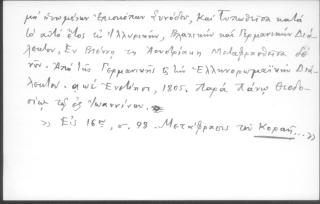 μῃ ἡνωμένων ἐπισκόπων Συνόδου, καὶ Τυπωθεῖσα κατὰ
τὸ αὐτὸ ἔτος εἰς Ἰλλυρικὴν, Βλαχικὴν καὶ Γερμανικὴν Διά-
λεκτον, Ἐν Βιέννῃ τῆς Αουστρίας Μεταφρασθεῖσα δὲ
Ἀπὸ τῆς Γερμανικῆς εἰς τὴν Ἑλληνορωμαϊκὴν Διά-
λεκτον. Ἐνετίησι, 1805. Παρὰ Πάνῳ Θεοδο-
σίου τῷ ἐξ Ἰωαννίνων.
» Εἰς 16ον, σ. 98. Μετάφρασις τοῦ Κοραῆ...»